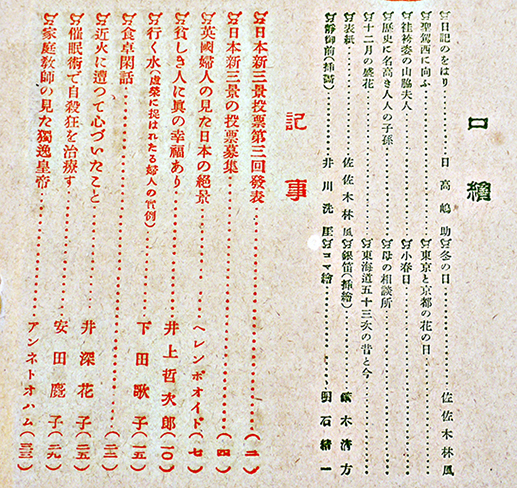 口繪
日記のをはり……日高嶋助
聖駕西に向ふ
袿袴姿の山脇夫人
歷史に名高き人人の子孫
十二月の盛花
表紙……佐佐木林風
靜御前(挿繪)……井川洗厓
冬の日……佐佐木林風
東京と京都の花の日
小春日
母の相談所
東海道五十三次の昔と今
銀笛(挿繪)……鏑木淸方
コマ繪……明石精一
記事
日本新三景投票第三回發表……(二)
日本新三景の投票募集……(四)
英國婦人の見た日本の絕景……ヘレンボオイド(七)
貧しき人に眞の幸福あり……井上哲次郎(一〇)
行水(虛榮に捉はれたる婦人の實例)……下田歌子(一五)
食卓閑話
近火に遭つて心づいたこと……井深花子(二五)
催眠術で自殺狂を治療す……安田鹿子(二九)
家庭教師の見た獨逸皇帝……アンネトオハム(三三)